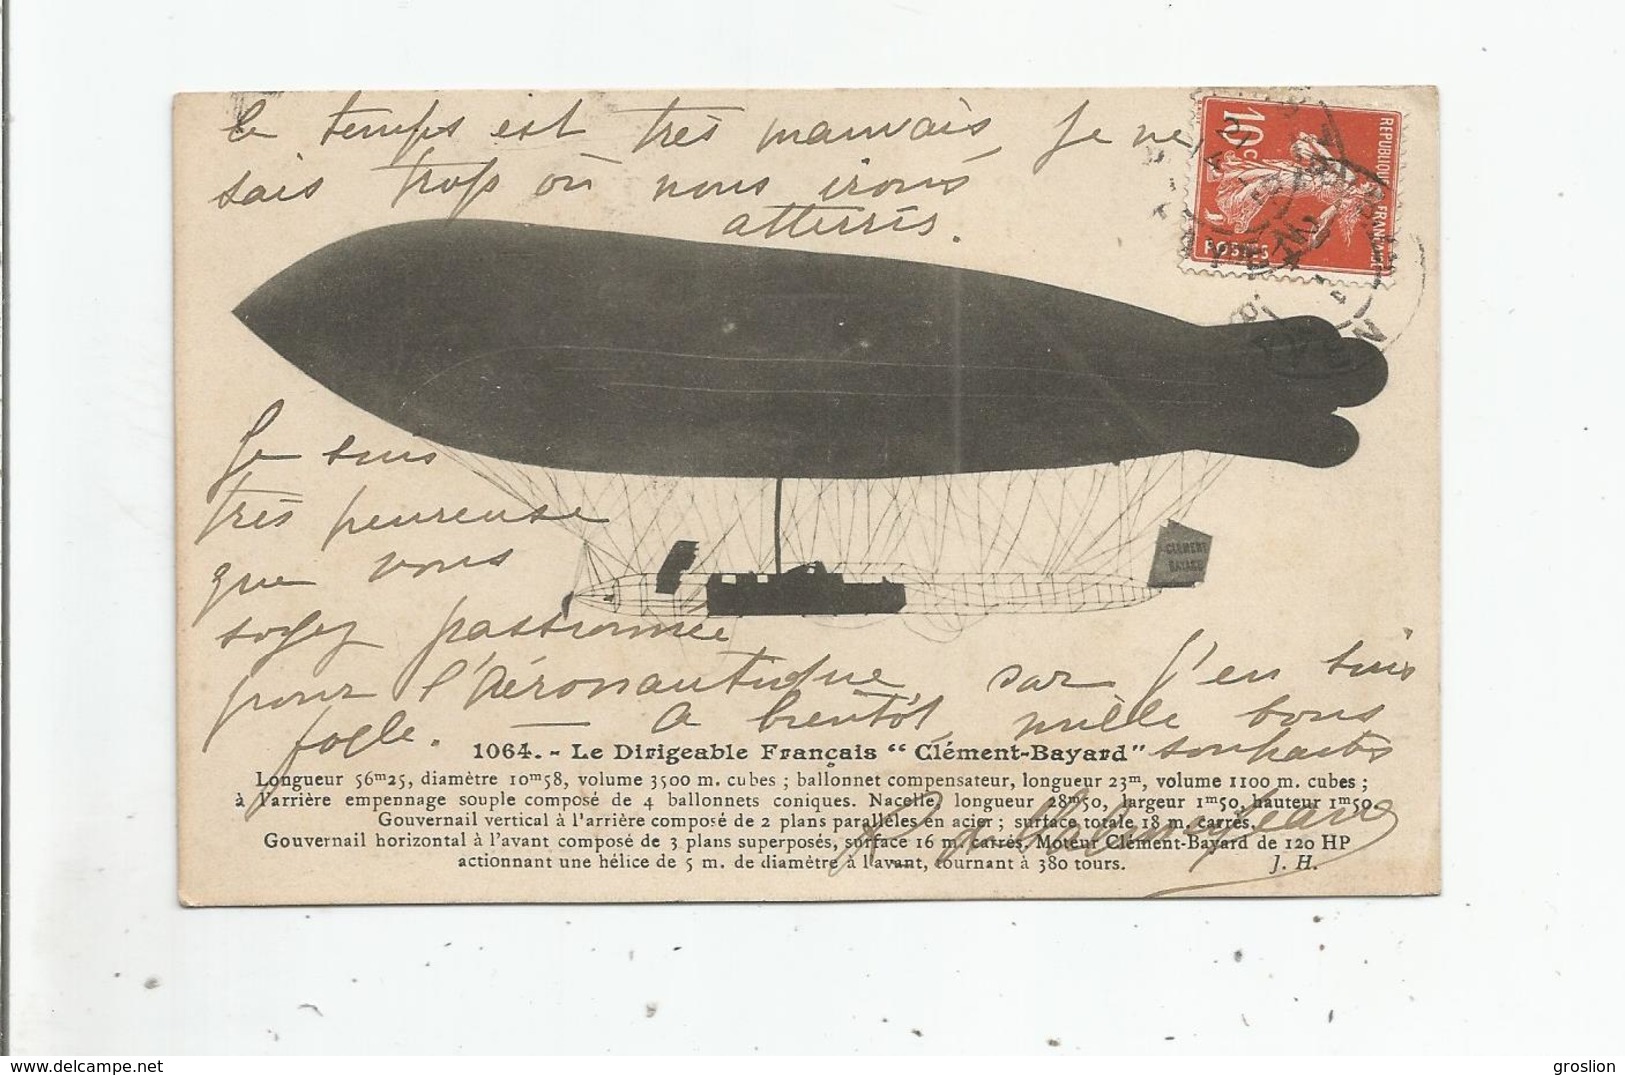 le temps est très mauvais, je ne
sais trop où nous irons
atterris.
REPUBLIQUE FRANÇAISE
10c
POSTES
Je suis
très heureuse
que vous
soyez passionnée
pour l'Aéronautique car j'en suis
folle. — a bientôt, mille bons
souhaits
CLEMENT
BAYARD
1064. - Le Dirigeable Français “ Clément-Bayard ”
Longueur 56m25, diamètre 10m58, volume 3500 m. cubes ; ballonnet compensateur, longueur 23m, volume 1100 m. cubes ;
à l'arrière empennage souple composé de 4 ballonnets coniques. Nacelle, longueur 28m50, largeur 1m50, hauteur 1m50.
Gouvernail vertical à l'arrière composé de 2 plans parallèles en acier ; surface totale 18 m. carrés.
Gouvernail horizontal à l'avant composé de 3 plans superposés, surface 16 m. carrés. Moteur Clément-Bayard de 120 HP
actionnant une hélice de 5 m. de diamètre à l'avant, tournant à 380 tours.
J. H.
www.delcampe.net
groslion